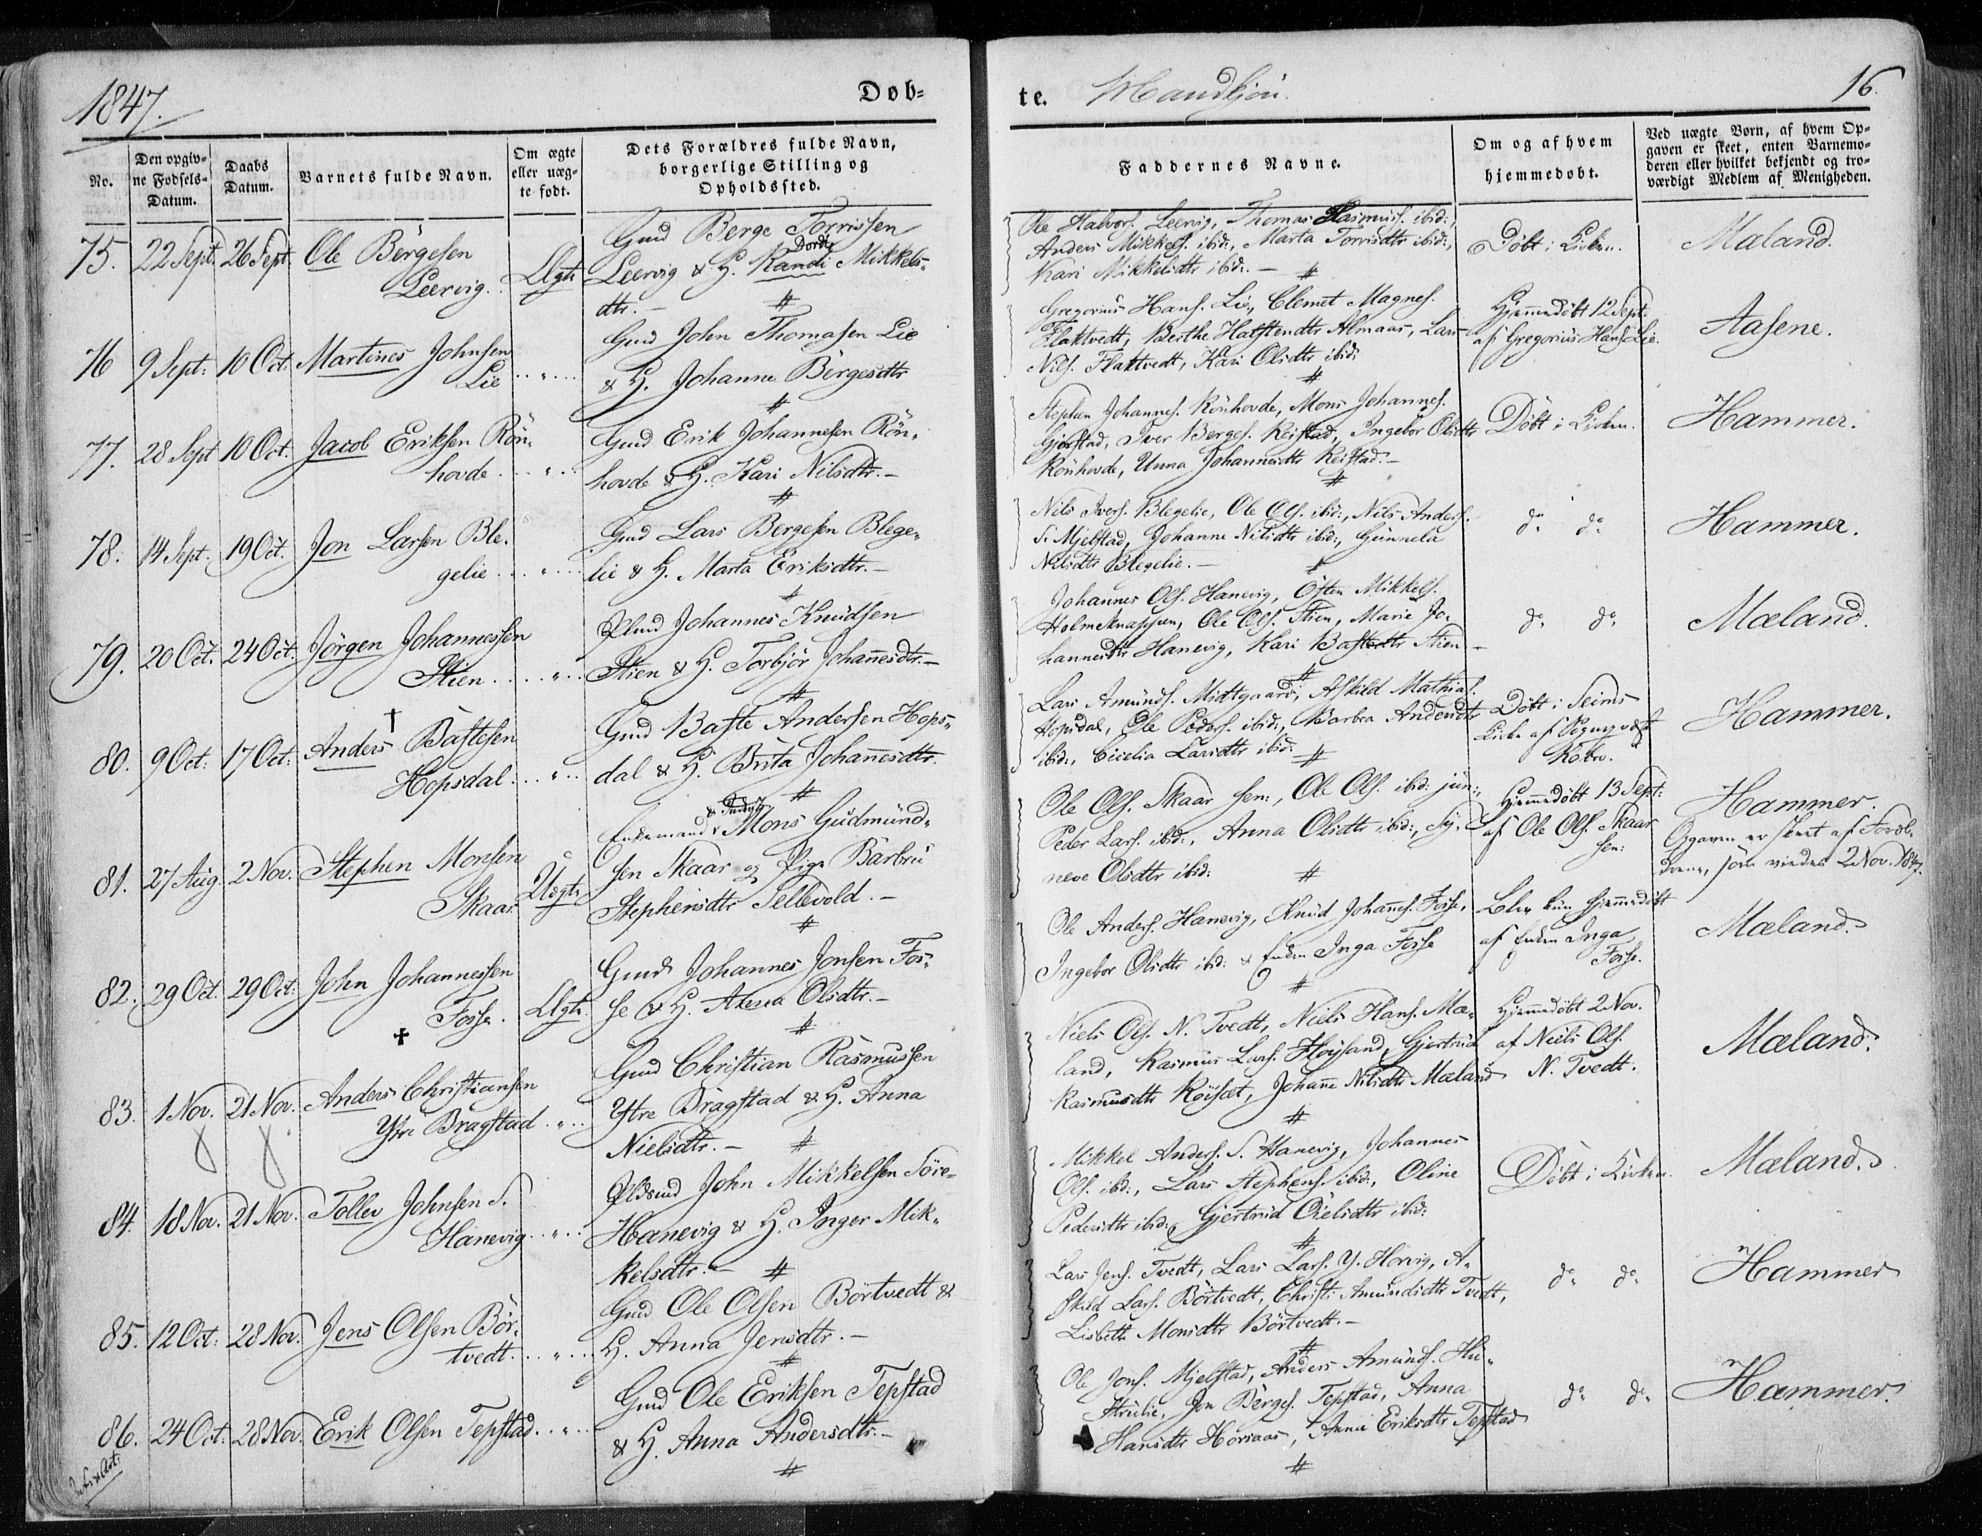 1847.
Døb-
te.
Mandkjön.
16.
No.
Den opgiv-
ne Fødsels-
Datum.
Daabs
Datum.
Barnets fulde Navn.
Om ægte
eller uæg-
te født.
Dets Forældres fulde Navn,
borgerlige Stilling og
Opholdssted.
Faddernes Navne.
Om og af hvem
hjemmedøbt.
Ved uægte Børn, af hvem Op-
gaven er skeet, enten Barnemo-
deren eller hvilket bekjendt og tro-
værdigt Medlem af Menigheden.
75. 22 Sept. 26 Sept. Ole Börgesen
Leervig.
Ægte
Gmd Berge Torrissen
Dordi
Leervig & H. Randi Mikkels-
dtr. -
Ole Halvors. Leervig, Thomas Rasmuss. ibid:,
Anders Mikkels. ibid:, Marta Torrisdtr ibid:,
Kari Mikkelsdtr ibid:. -
Døbt i Kirken.
Mæland.
76 9 Sept: 10 Oct. Martines Johnsen
Lie
Gmd John Thomasen Lie
& H. Johanne Börgesdtr
Gregorius Hans. Lie, Clemet Magnes.
Flattvedt, Berthe Halstendtr Almaas, Lars
Nils. Flattvedt, Kari Olsdtr ibid:
Hjemmedøbt 12 Sept.
af Gregorius Hans. Lie.
Aasene.
77. 28 Sept 10 Oct. Jacob Eriksen Rön-
hovde
Gmd Erik Johannesen Rön-
hovde & H. Kari Nilsdtr. -
Stephen Johannes. Rönhovde, Mons Johannes.
Gjerstad, Iver Berges. Reistad, Ingebor Olsdtr
Rönhovde, Unna Johannesdtr Reistad. -
Döbt i Kirken.
Hammer.
78. 14 Sept. 19 Oct. Jon Larsen Ble-
gelie
Gmd Lars Bergesen Blege-
lie & H. Marta Eriksdtr. -
Nils Ivers. Blegelie, Ole Ols. ibid:, Nils Anders.
S. Mjelstad, Johanne Nilsdtr ibid:, Gunnela
Nilsdtr Blegelie. -
do do
Hammer.
79. 20 Oct. 24 Oct. Jörgen Johannessen
Stien
Plmd Johannes Knudsen
Stien & H. Torbjör Johannesdtr. -
Johannes Ols. Hanevig, Östen Mikkels.
Holmeknappen, Ole Ols. Stien, Marie Jo-
hannesdtr Hanevig, Kari Bastedtr Stien -
do do
Mæland.
80. 9 Oct: 17 Oct: Anders Bastesen
Hopsdal
Gmd Baste Andersen Hops-
dal & H. Brita Johannesdtr.
Lars Amunds. Midtgaard, Askild Mathias.
Hopsdal, Ole Peders. ibid:, Barbra Andersdtr
ibid:, Cicelia Larsdtr ibid:
Döbt i Seims
Kirke af Sognepræst
Kobro.
Hammer.
81. 27 Aug. 2 Nov. Stephen Monsen
Skaar
Uægte
Enkemand Mons Gudmund-
sen Skaar og Pige Barbru
Stephensdtr Sellevold. -
Ole Ols. Skaar sen:, Ole Ols. ibid: jun:,
Peder Lars. ibid:, Anna Olsdtr ibid:, Sy-
neve Olsdtr ibid:
Hjemmedöbt 13 Sept:
af Ole Ols. Skaar
sen:
Hammer.
Opgaven er skeet af Foræl-
drene, som viedes 2 Nov. 1847.
82. 29 Oct. 29 Oct: John Johannessen
Fosse.
Ægte
Gmd Johannes Jonsen Fos-
se & H. Anna Olsdtr. -
Ole Anders. Hanevig, Knud Johannes. Fosse,
Ingebor Olsdtr ibid: & Enken Inga Fosse
Blev kun hjemmedöbt
af Enken Inga
Fosse.
Mæland.
83. 1 Nov. 21 Nov. Anders Christiansen
Ytre Bragstad
Gmd Christian Rasmussen
Ytre Bragstad & H. Anna
Nielsdtr. -
Niels Ols. N. Tvedt, Niels Hans. Mæ-
land, Rasmus Lars. Höisand, Gjertrud
Rasmusdtr Röisæt, Johanne Nilsdtr Mæland
Hjemmedøbt 2 Nov.
af Niels Ols.
N. Tvedt.
Mæland.
84. 18 Nov. 21 Nov. Tollev Johnsen S.
Hanevig
Pldsmd John Mikkelsen Söre-
Hanevig & H. Inger Mik-
kelsdtr. -
Mikkel Anders. S. Hanevig, Johannes
Ols. ibid:, Lars Stephens. ibid:, Oline
Pedersdtr ibid:, Gjertrud Öielsdtr ibid:
Döbt i Kirken.
Mæland.
85. 12 Oct: 28 Nov. Jens Olsen Bör-
tvedt
Gmd Ole Olsen Börtvedt &
H. Anna Jensdtr. -
Lars Jens. Tvedt, Lars Lars. Y. Horvig, A-
skild Lars. Börtvedt, Christi Amundsdtr Tvedt,
Lisbeth Monsdtr Börtvedt. -
do do
Hammer
86. 24 Oct: 28 Nov. Erik Olsen Tepstad
Gmd Ole Eriksen Tepstad
& H. Anna Andersdtr. -
Ole Jons. Mjelstad, Anders Amunds. Hu-
strulie, Jon Börges. Tepstad, Anna
Hansdtr Horsaas, Anne Eriksdtr Tepstad
do do
Hammer.